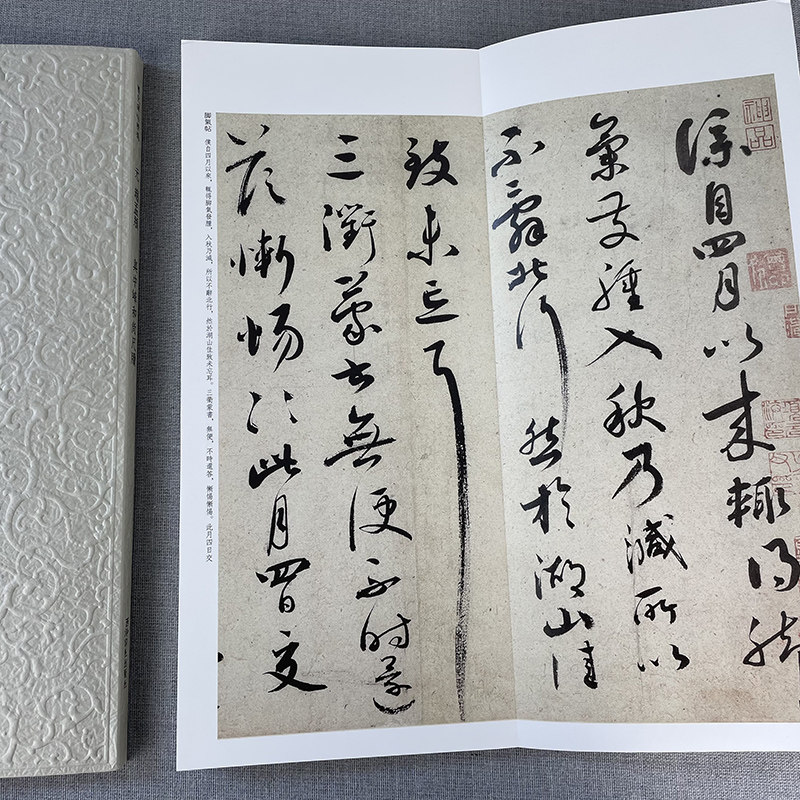 神品
僕自四月以来輙得脚
氣發腫入秋乃減所以
不辭北行然於湖山佳
致未忘耳
三衢蒙書無便不時還
答慚惕〻此月四日交
脚氣帖 僕自四月以來，輒得脚氣發腫，入秋乃減，所以不辭北行，然於湖山佳致未忘耳。三衢蒙書，無便，不時還答，慚惕慚惕。此月四日交